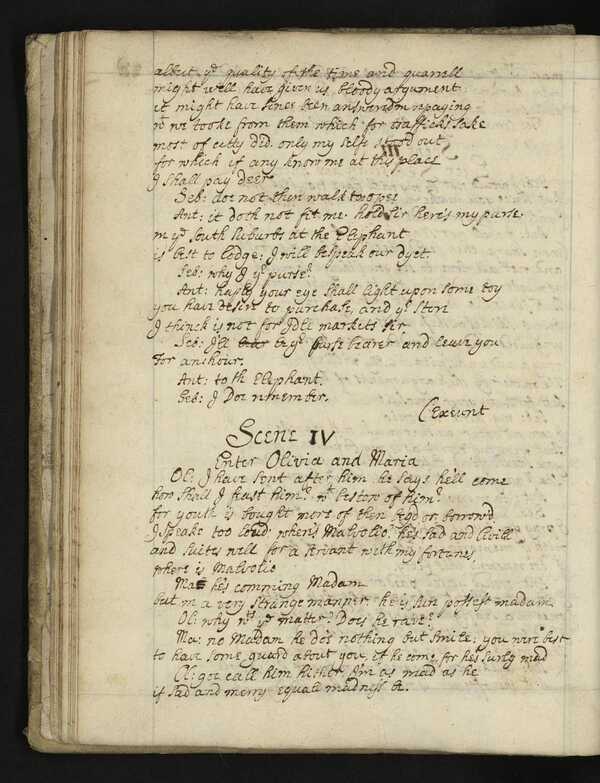 albeit ye quality of the time and quarrell
might well have given us bloody argument
it might have since been answered in repaying
wt we tooke from them which for traffiks sake
most of citty did. only my selfe stood out
for which if any know me at this place
I shall pay deer
Seb: doe not then walk to open
Ant: it doth not fit me. hold Sir here's my purse
in ye South Suburbs at the Elephant
is best to lodge: I will bespeak our dyet.
Seb: why I ye purse?
Ant: haply your eye shall light upon some toy
you have desire to purchase, and ye store
I thinck is not for Idle markets Sir
Seb: I'le be ye purse bearer and leave you
For an hour.
Ant: to th Elephant.
Seb: I Doe remember.
(Exeunt
Scene IV
Enter Olivia and Maria
Ol: I have sent after him he says he'll come
how shall I feast him? wt bestow of him?
for youth is bought more of then beg'd or borrow'd
I speake too loud where's Malvolio? he's sad and Civill
and suites well for a servant with my fortunes,
where is Malvolio
Ma: he's comming Madam
but in a very strange manner. he is sure possest madam
Ol: why wts ye matter? Does he rave?
Ma: no Madam he do's nothing but smile; you were best
to have some guard about you, if he come, for he's surely mad
Ol: goe call him hither. I'm as mad as he
if sad and merry equall madness be.